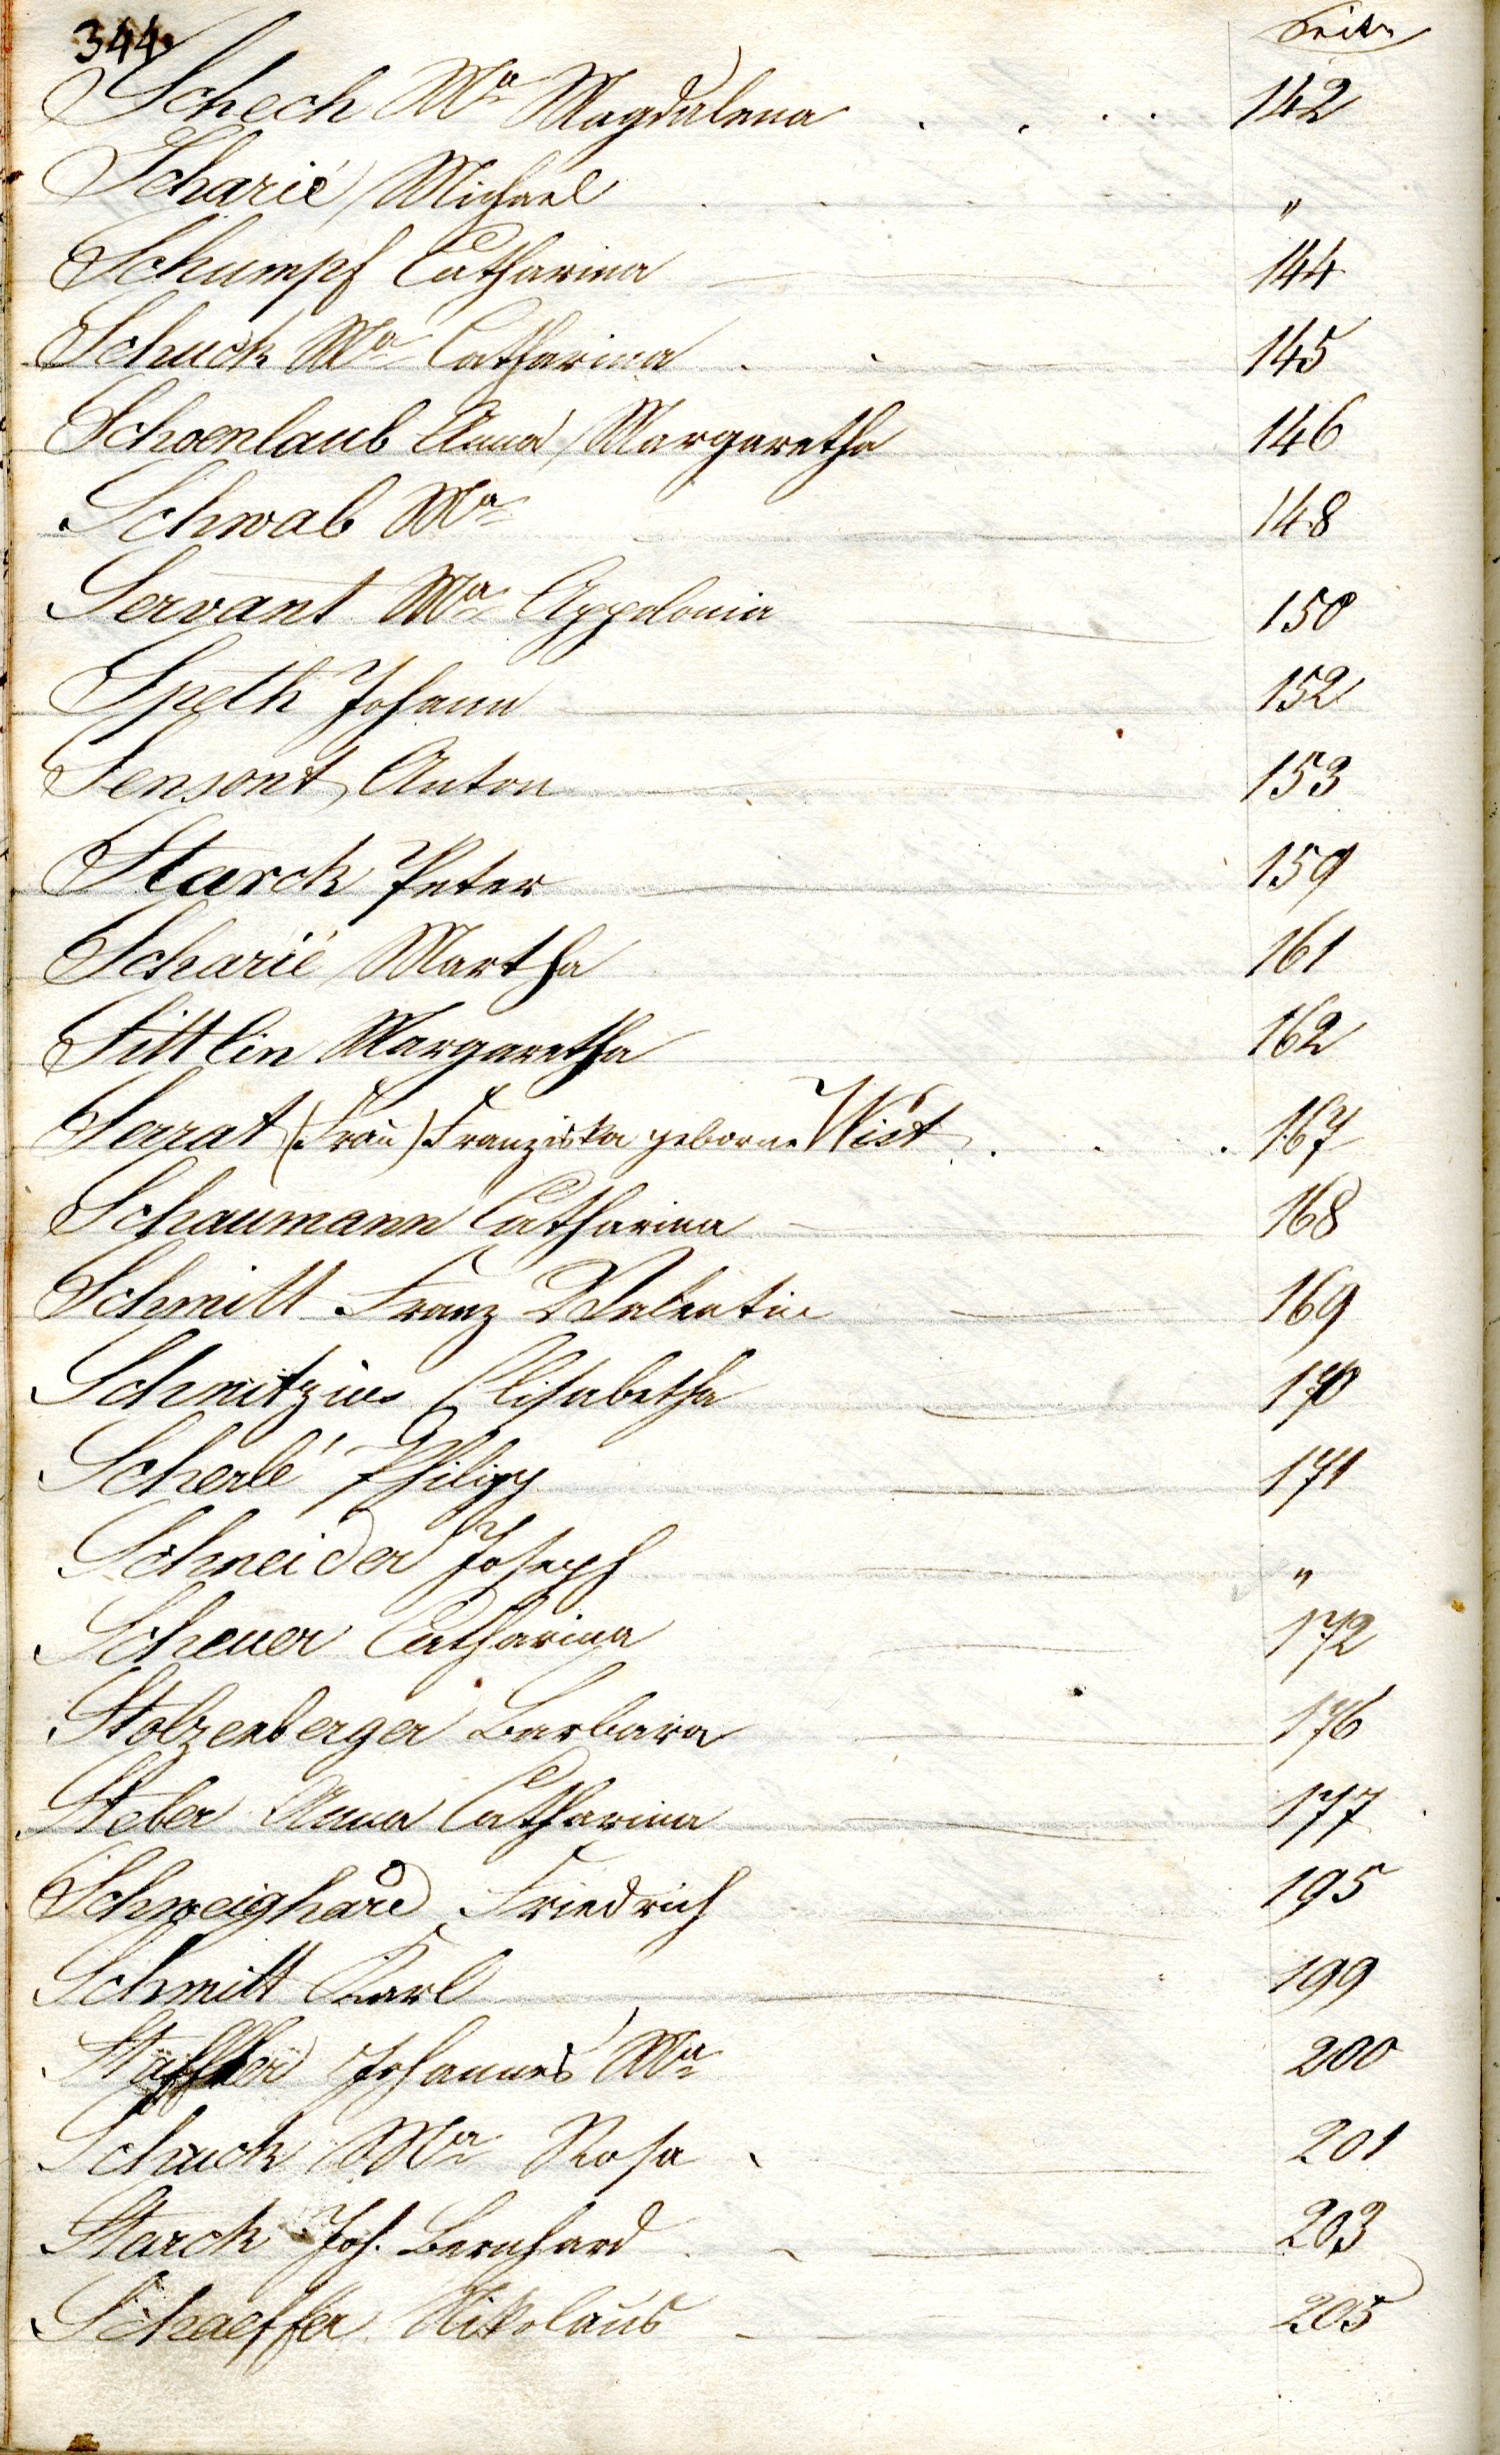 344 Seite
Schech Ma Magdalena . . . . 142
Scharié Michael . . . . . "
Schumpf Catharina 144
Schuck Ma Catharina 145
Schoenlaub Anna Margaretha 146
Schwab Ma 148
Servant Ma Appolonia 150
Speth Johann 152
Sensont Anton 153
Starck Peter 159
Scharié Martha 161
Sittlin Margaretha 162
Serrat (Frau) Franziska geborne Wist . . . 167
Schaumann Catharina 168
Schmitt Franz Valentin 169
Schmitzius Elisabetha 170
Scherlé Philipp 171
Schneider Joseph "
Scheuer Catharina 172
Stolzenberger Barbara 176
Steber Anna Catharina 177
Schweighard Friedrich 195
Schmitt Karl 199
Johannes Ma 200
Schuck Ma Rosa 201
Starck Joh. Bernhard 203
Schaeffer Nikolaus 205